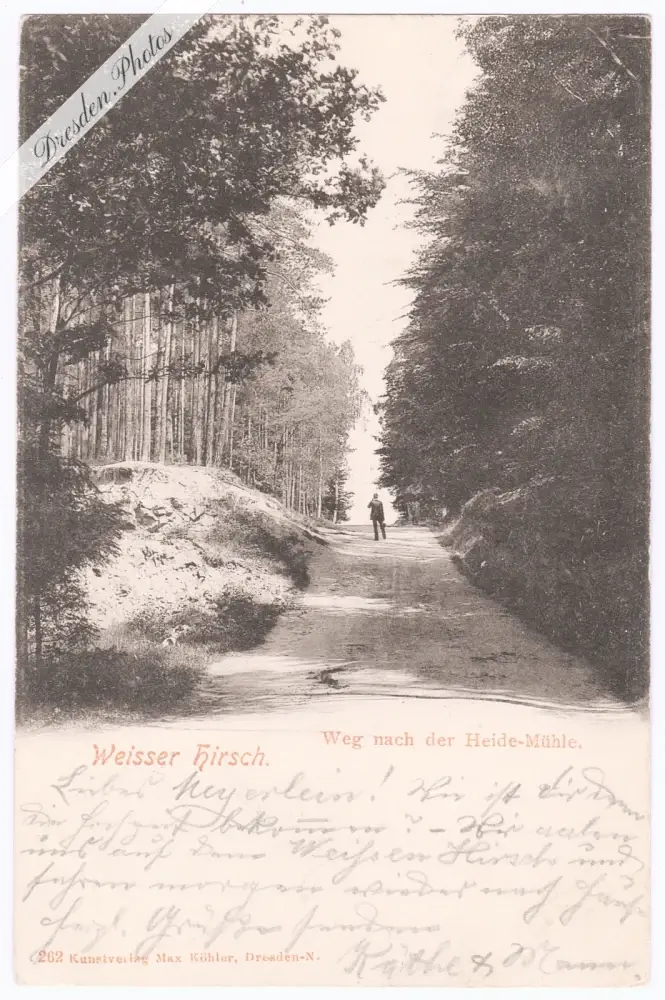 Dresden.Photos
Weg nach der Heide-Mühle.
Weisser Hirsch.
Liebes Meyerlein! Wie ist Dir denn
die Hochzeit bekommen? – Wir aalen
uns auf dem Weißen Hirsch und
fahren morgen wieder nach Hause
herzl. Grüße senden
Käthe & Mann
262 Kunstverlag Max Köhler, Dresden-N.